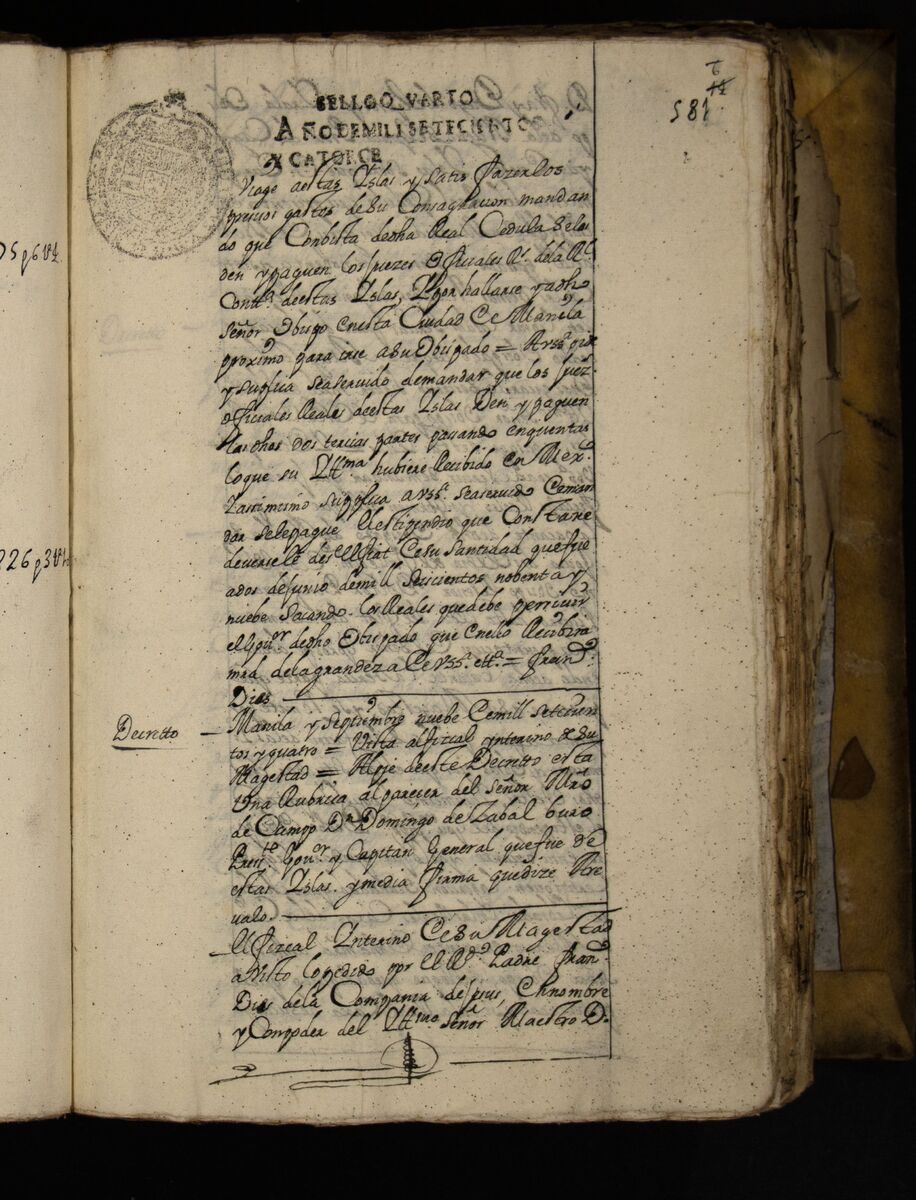 581
SELLO QVARTO
AÑO DE MIL I SETECIENTOS
Y CATORCE
Viage aestas Yslas y satis fazerlos
presisos gastos desu Consagracion mandan
do que Conbista dedha Real Cedula seles
den ypaguen los Juezes Officiales Rs. dela Rl.
Contta. deestas Yslas, Ypor hallarse ya dho
señor Obispo enesta Ciudad de Manila
proximo para irse asu Obispado = A vssa. pide
y suplica sea servido demandar que los Juez.
officiales Reales deestas Yslas Den y paguen
las dhas dos tercias partes pasando enquentas
loque su Yllma hubiere Recibido en Mexco.
Yassimismo supplica avssa. sea servido deman
dar sele pague el estipendio que Constare
deversele desde el fiat de su Santidad que fue
ados de Junio demill seiscientos nobenta y
nuebe sacando los Reales quedebe
el Govor. dedho Obispado que enello Recibira
mrd dela grandeza de vssa. etta. = Franco.
Dias
Decretto
Manila y septiembre nuebe de mill setecien
tos y quatro = Vista al fiscal ynterino de Su
Magestad = Al pie deeste Decreto esta
Una Rubrica al parecer del señor Mro
de Campo Dn Domingo de Zabal buro
Presite. Govor. y Capitan General que fue de
estas Yslas. y media firma que dize Are
valo.
El fiscal Ynterino de su Magestad
a Visto lo pedido por el Rdo. Padre Franco.
Dias dela Compania de Jesus, en nombre
y Conpoder del Yllmo señor Maestro D.